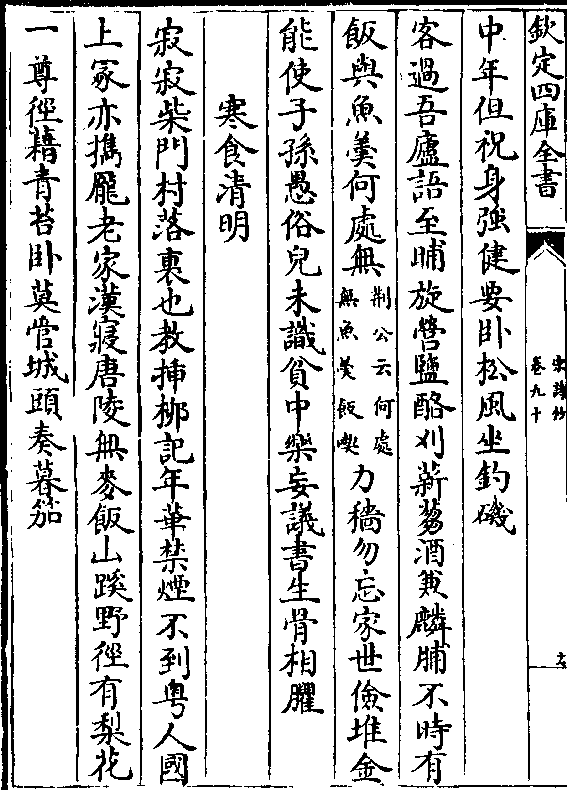 欽定四庫全書
宋詩鈔
卷九十
六
中年但祝身强健要卧松風坐釣磯
客過吾廬語至晡旋營鹽酪刈薪芻酒兼麟脯不時有
飯與魚羮何處無荆公云何處無魚羮飯喫力穡勿忘家世儉堆金
能使子孫愚俗兒未識貧中樂妄議書生骨相臞
寒食清明
寂寂柴門村落裏也教挿栁記年華禁煙不到粤人國
上冢亦㩦龎老家漢寢唐陵無麥飯山蹊野徑有梨花
一尊徑藉青苔卧莫管城頭奏暮笳